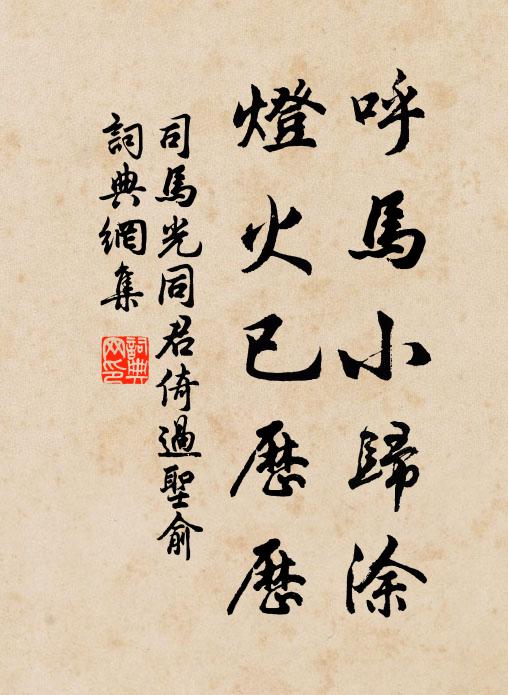 呼馬小歸涂
燈火已歷歷
司馬光同君倚過聖俞
詞典網集
詞典網印